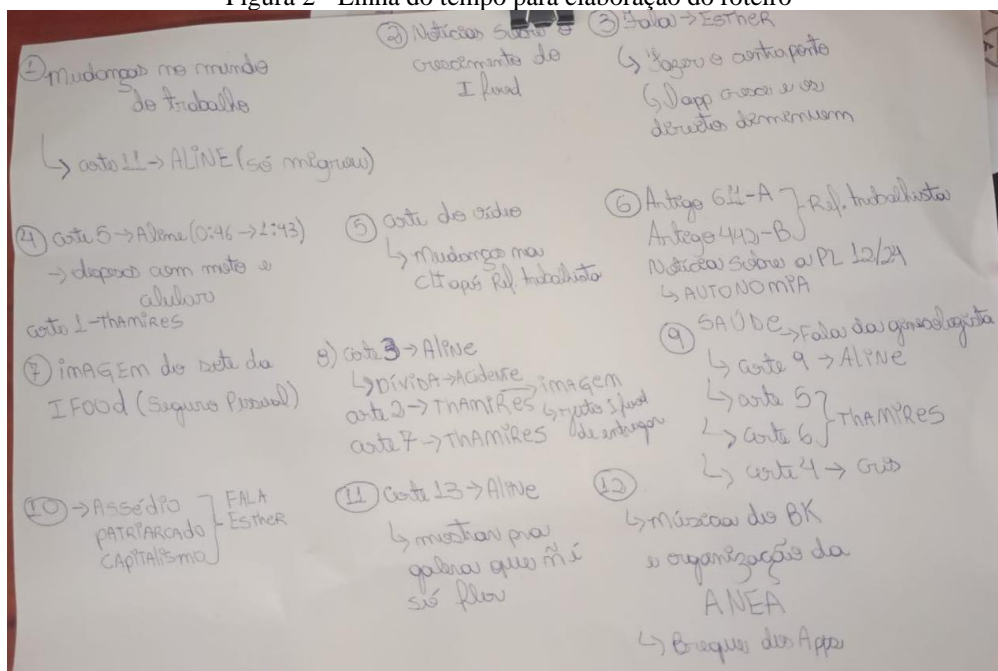 Figura 2 - Linha do tempo para elaboração do roteiro
① Mudanças no mundo
do trabalho
↳ corte 11 → ALINE (só migrou)
② Notícias sobre o
crescimento do
Ifood
③ Fala → ESTHER
↳ Fazer o contraponto
↳ O app cresce e os
direitos diminuem
④ Corte 5 → Aline (0:46 → 1:43)
→ despesas com moto e
celular
corte 1 - THAMIRES
⑤ corte do vídeo
↳ Mudanças na
CLT após Ref. trabalhista
⑥ Artigo 611-A
Artigo 442-B
Ref. trabalhista
Notícias sobre a PL 12/24
↳ AUTONOMIA
⑦ IMAGEM do site da
IFOOD (Seguro Pessoal)
8) corte 3 → Aline
↳ DÍVIDA → Acidente
corte 2 → THAMIRES
corte 7 → THAMIRES
→ IMAGEM
↳ Ifood
de entregar
⑨ SAÚDE → Fala da ginecologista
↳ corte 9 → ALINE
↳ corte 5
↳ corte 6
THAMIRES
↳ corte 4 → Cris
⑩ → Assédio
PATRIARCADO
CAPITALISMO
FALA
ESTHER
⑪ Corte 13 → Aline
↳ mostrar pra
galera que ñ é
só flor
⑫
↳ Música do BK
e organização da
ANEA
↳ Breque dos Apps